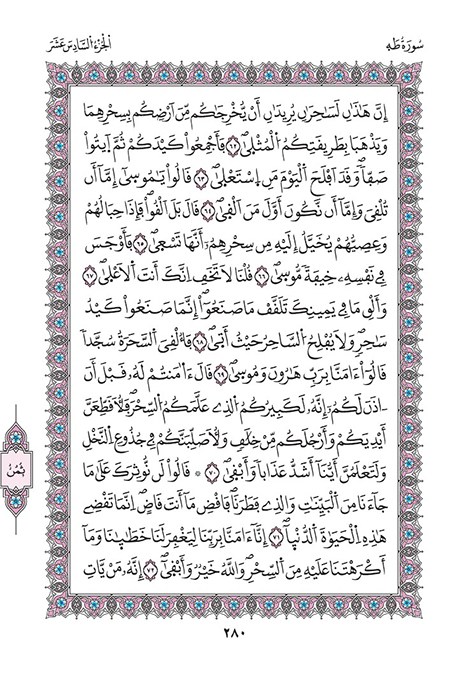 سُورَةُ طَهِ
الْجُزْءُ السَّادِسَ عَشَرَ
إِنَّ هَٰذَٰنِ لَسَٰحِرَٰنِ يُرِيدَٰنِ أَنْ يُّخْرِجَٰكُم مِّنَ اَرْضِكُم بِسِحْرِهِمَا
وَيَذْهَبَا بِطَرِيقَتِكُمُ الْمُثْلَىٰۖ ٦٢ فَأَجْمِعُواْ كَيْدَكُمْ ثُمَّ اَيتُواْ
صَفّاٗۖ وَقَدَ اَفْلَحَ اَلْيَوْمَ مَنِ اِسْتَعْلَىٰۖ ٦٣ قَالُواْ يَٰمُوسَىٰٓ إِمَّآ أَن
تُلْقِيَ وَإِمَّآ أَن نَّكُونَ أَوَّلَ مَنَ اَلْقَىٰۖ ٦٤ قَالَ بَلَ اَلْقُواْۖ فَإِذَا حِبَالُهُمْ
وَعِصِيُّهُمْ يُخَيَّلُ إِلَيْهِ مِن سِحْرِهِمُۥٓ أَنَّهَا تَسْعَىٰۖ ٦٥ فَأَوْجَسَ
فِي نَفْسِهِۦ خِيفَةٗ مُّوسَىٰۖ ٦٦ قُلْنَا لَا تَخَفِ اِنَّكَ أَنتَ اَلَاعْلَىٰۖ ٦٧
وَأَلْقِ مَا فِي يَمِينِكَ تَلَقَّفْ مَا صَنَعُوٓاْۖ إِنَّمَا صَنَعُواْ كَيْدُ
سَٰحِرٖۖ وَلَا يُفْلِحُ اُلسَّاحِرُ حَيْثُ أَتَىٰۖ ٦٨ فَأُلْقِيَ اَلسَّحَرَةُ سُجَّداٗ
قَالُوٓاْ ءَامَنَّا بِرَبِّ هَٰرُونَ وَمُوسَىٰۖ ٦٩ قَالَ ءَٰا۬مَنتُمْ لَهُۥ قَبْلَ أَنَ
ـ اٰذَنَ لَكُمُۥٓۖ إِنَّهُۥ لَكَبِيرُكُمُ اُلذِے عَلَّمَكُمُ اُلسِّحْرَۖ فَلَأُقَطِّعَنَّ
أَيْدِيَكُمْ وَأَرْجُلَكُم مِّنْ خِلَٰفٖ وَلَأُصَلِّبَنَّكُمْ فِي جُذُوعِ اِلنَّخْلِ
وَلَتَعْلَمُنَّ أَيُّنَآ أَشَدُّ عَذَاباٗ وَأَبْقَىٰۖ ٧٠ قَالُواْ لَن نُّوثِرَكَ عَلَىٰ مَا
جَآءَنَا مِنَ اَلْبَيِّنَٰتِ وَالذِے فَطَرَنَاۖ فَاقْضِ مَآ أَنتَ قَاضٍۖ اِنَّمَا تَقْضِے
هَٰذِهِ اِلْحَيَوٰةَ اَلدُّنْيَآۖ ٧١ إِنَّآ ءَامَنَّا بِرَبِّنَا لِيَغْفِرَ لَنَا خَطَٰيَٰنَا وَمَآ
أَكْرَهْتَنَا عَلَيْهِ مِنَ اَلسِّحْرِۖ وَاللَّهُ خَيْرٞ وَأَبْقَىٰٓۖ ٧٢ إِنَّهُۥ مَنْ يَّاتِ
ثُمُنُ
٢٨٠